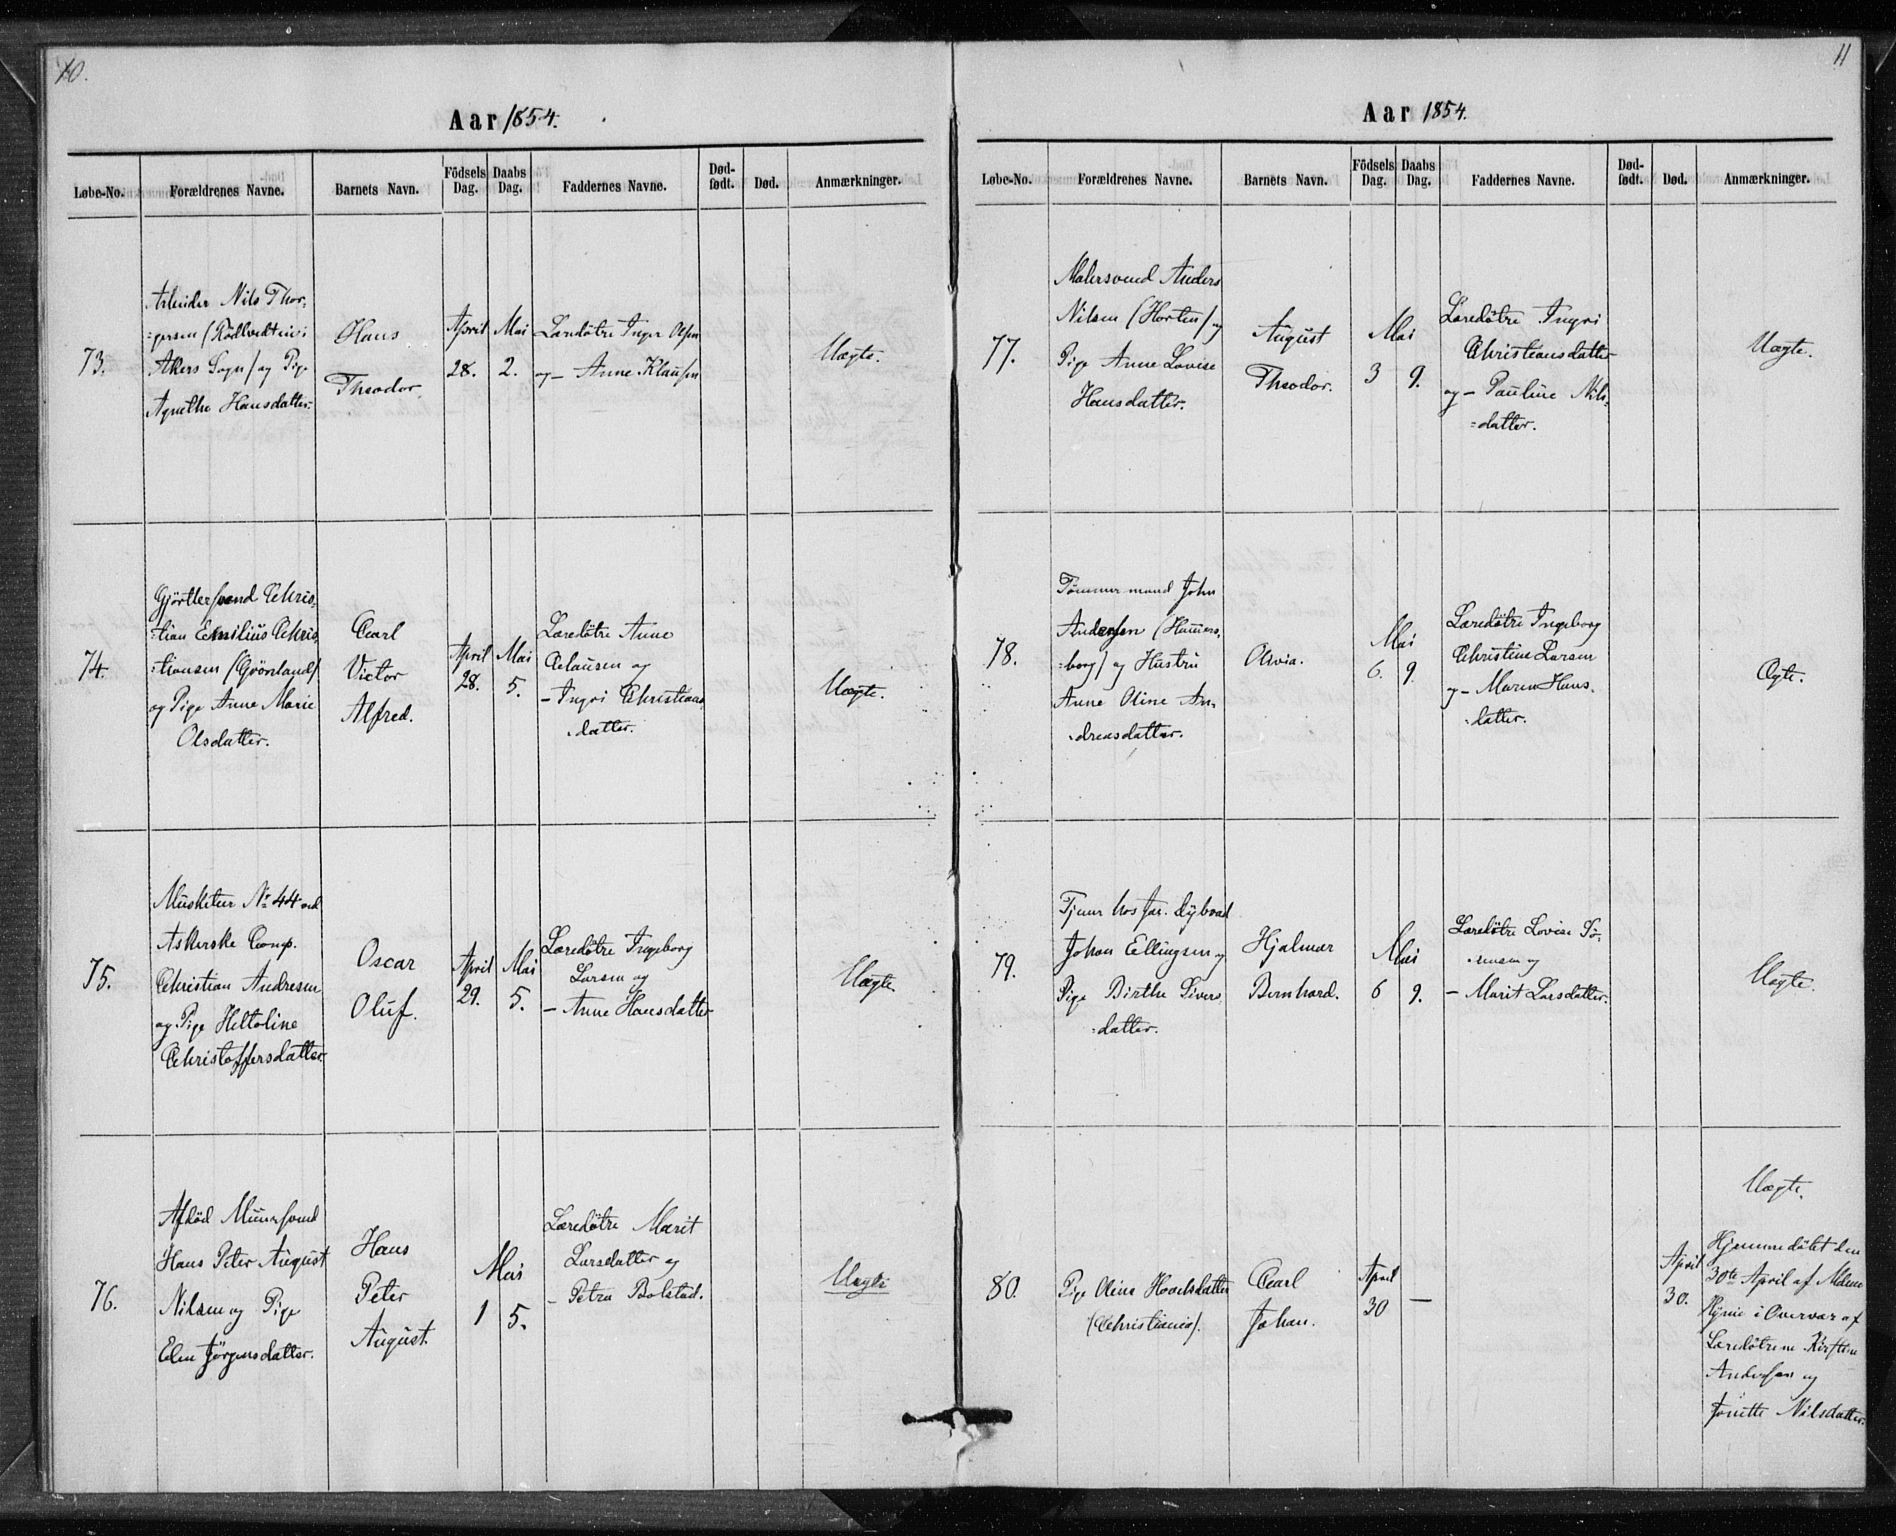 10.
Aar 1854.
Løbe-No. Forældrenes Navne. Barnets Navn. Födsels Dag. Daabs Dag. Faddernes Navne. Død-født. Død. Anmærkninger.
73.
Arbeider Nils Thor-
=gersen (Rödtvedt
Akers Sogn) og Pige
Agnethe Hansdatter.
Hans
Theodor.
April
28.
Mai
2.
Læredötre Inger Olsen
og — Anne Klausen
Uægte.
74.
Gjörtlersvend Chris-
=tian Emilius Chris
=tiansen (Grönland)
og Pige Anne Marie
Olsdatter.
Carl
Victor
Alfred.
April
28.
Mai
5.
Læredötre Anne
Clausen og
— Ingri Christians
datter.
Uægte.
75.
Musketeer No 44 ved
Askerske Comp.
Christian Andresen
og Pige Heltoline
Christoffersdatter.
Oscar
Oluf.
April
29.
Mai
5.
Læredötre Ingeborg
Larsen og
— Anne Hansdatter
Uægte.
76.
Afdöd Muursvend
Hans Peter August
Nilsen og Pige
Elen Jörgensdatter.
Hans
Peter
August.
Mai
1
5.
Læredötre Marit
Larsdatter og
— Petra Bolstad.
Uægte
11
Aar 1854.
Løbe-No. Forældrenes Navne. Barnets Navn. Födsels Dag. Daabs Dag. Faddernes Navne. Død-født. Død. Anmærkninger.
77.
Malersvend Anders
Nilsen (Horten) og
Pige Anne Lovise
Hansdatter.
August
Theodor.
Mai
3
9.
Læredötre Ingri
Christiansdatter
og — Pauline Nils-
=datter.
Uægte.
78.
Tömmermand John
Andersen (Hamers-
=borg) og Hustru
Anne Oline An-
dreasdatter.
Olivia.
Mai
6.
9.
Læredötre Ingeborg
Christine Larsen
og — Maren Hans.
datter.
Ægte.
79.
Tjener hos Jac. Dybwad
Johan Ellingsen og
Pige Birthe Sivers
datter.
Hjalmar
Bernhard.
Mai
6
9.
Læredötre Lovise Sö-
rensen og
— Marit Larsdatter.
Uægte.
80.
Pige Oline Hovelsdatter
(Christiania).
Carl
Johan.
April
30
—
April
30.
Uægte.
Hjemmedöbt den
30te April af Mdme
i Overvær af
Læredötrene Kirstine
Andersen og
Nilsdatter.